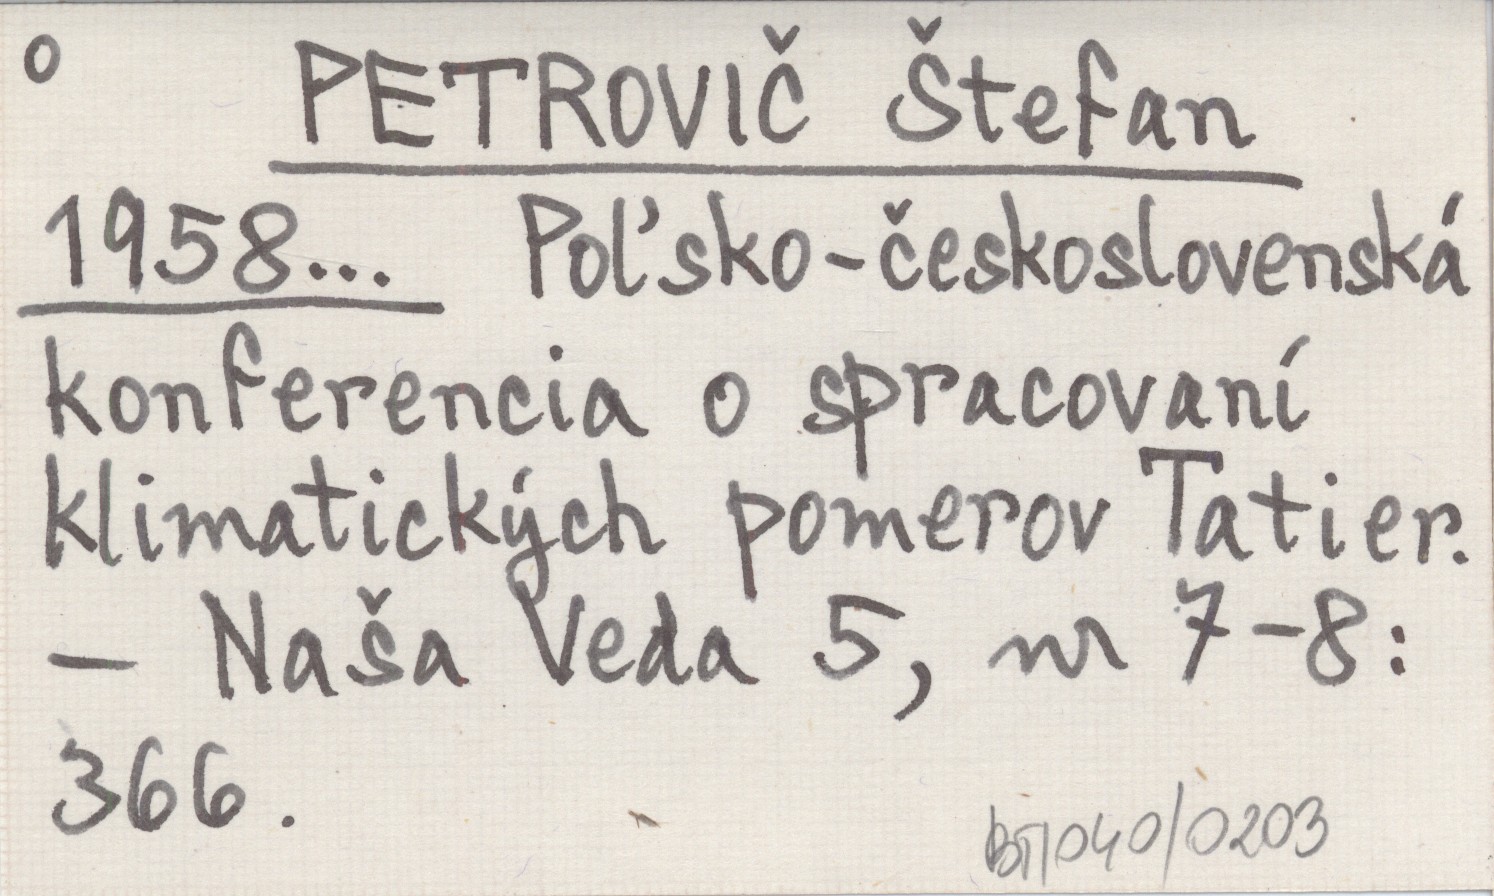 o PETROVIČ Štefan
1958... Poľsko-československá
konferencia o spracovaní
klimatických pomerov Tatier.
- Naša Veda 5, nr 7-8:
366.
BT/040/0203